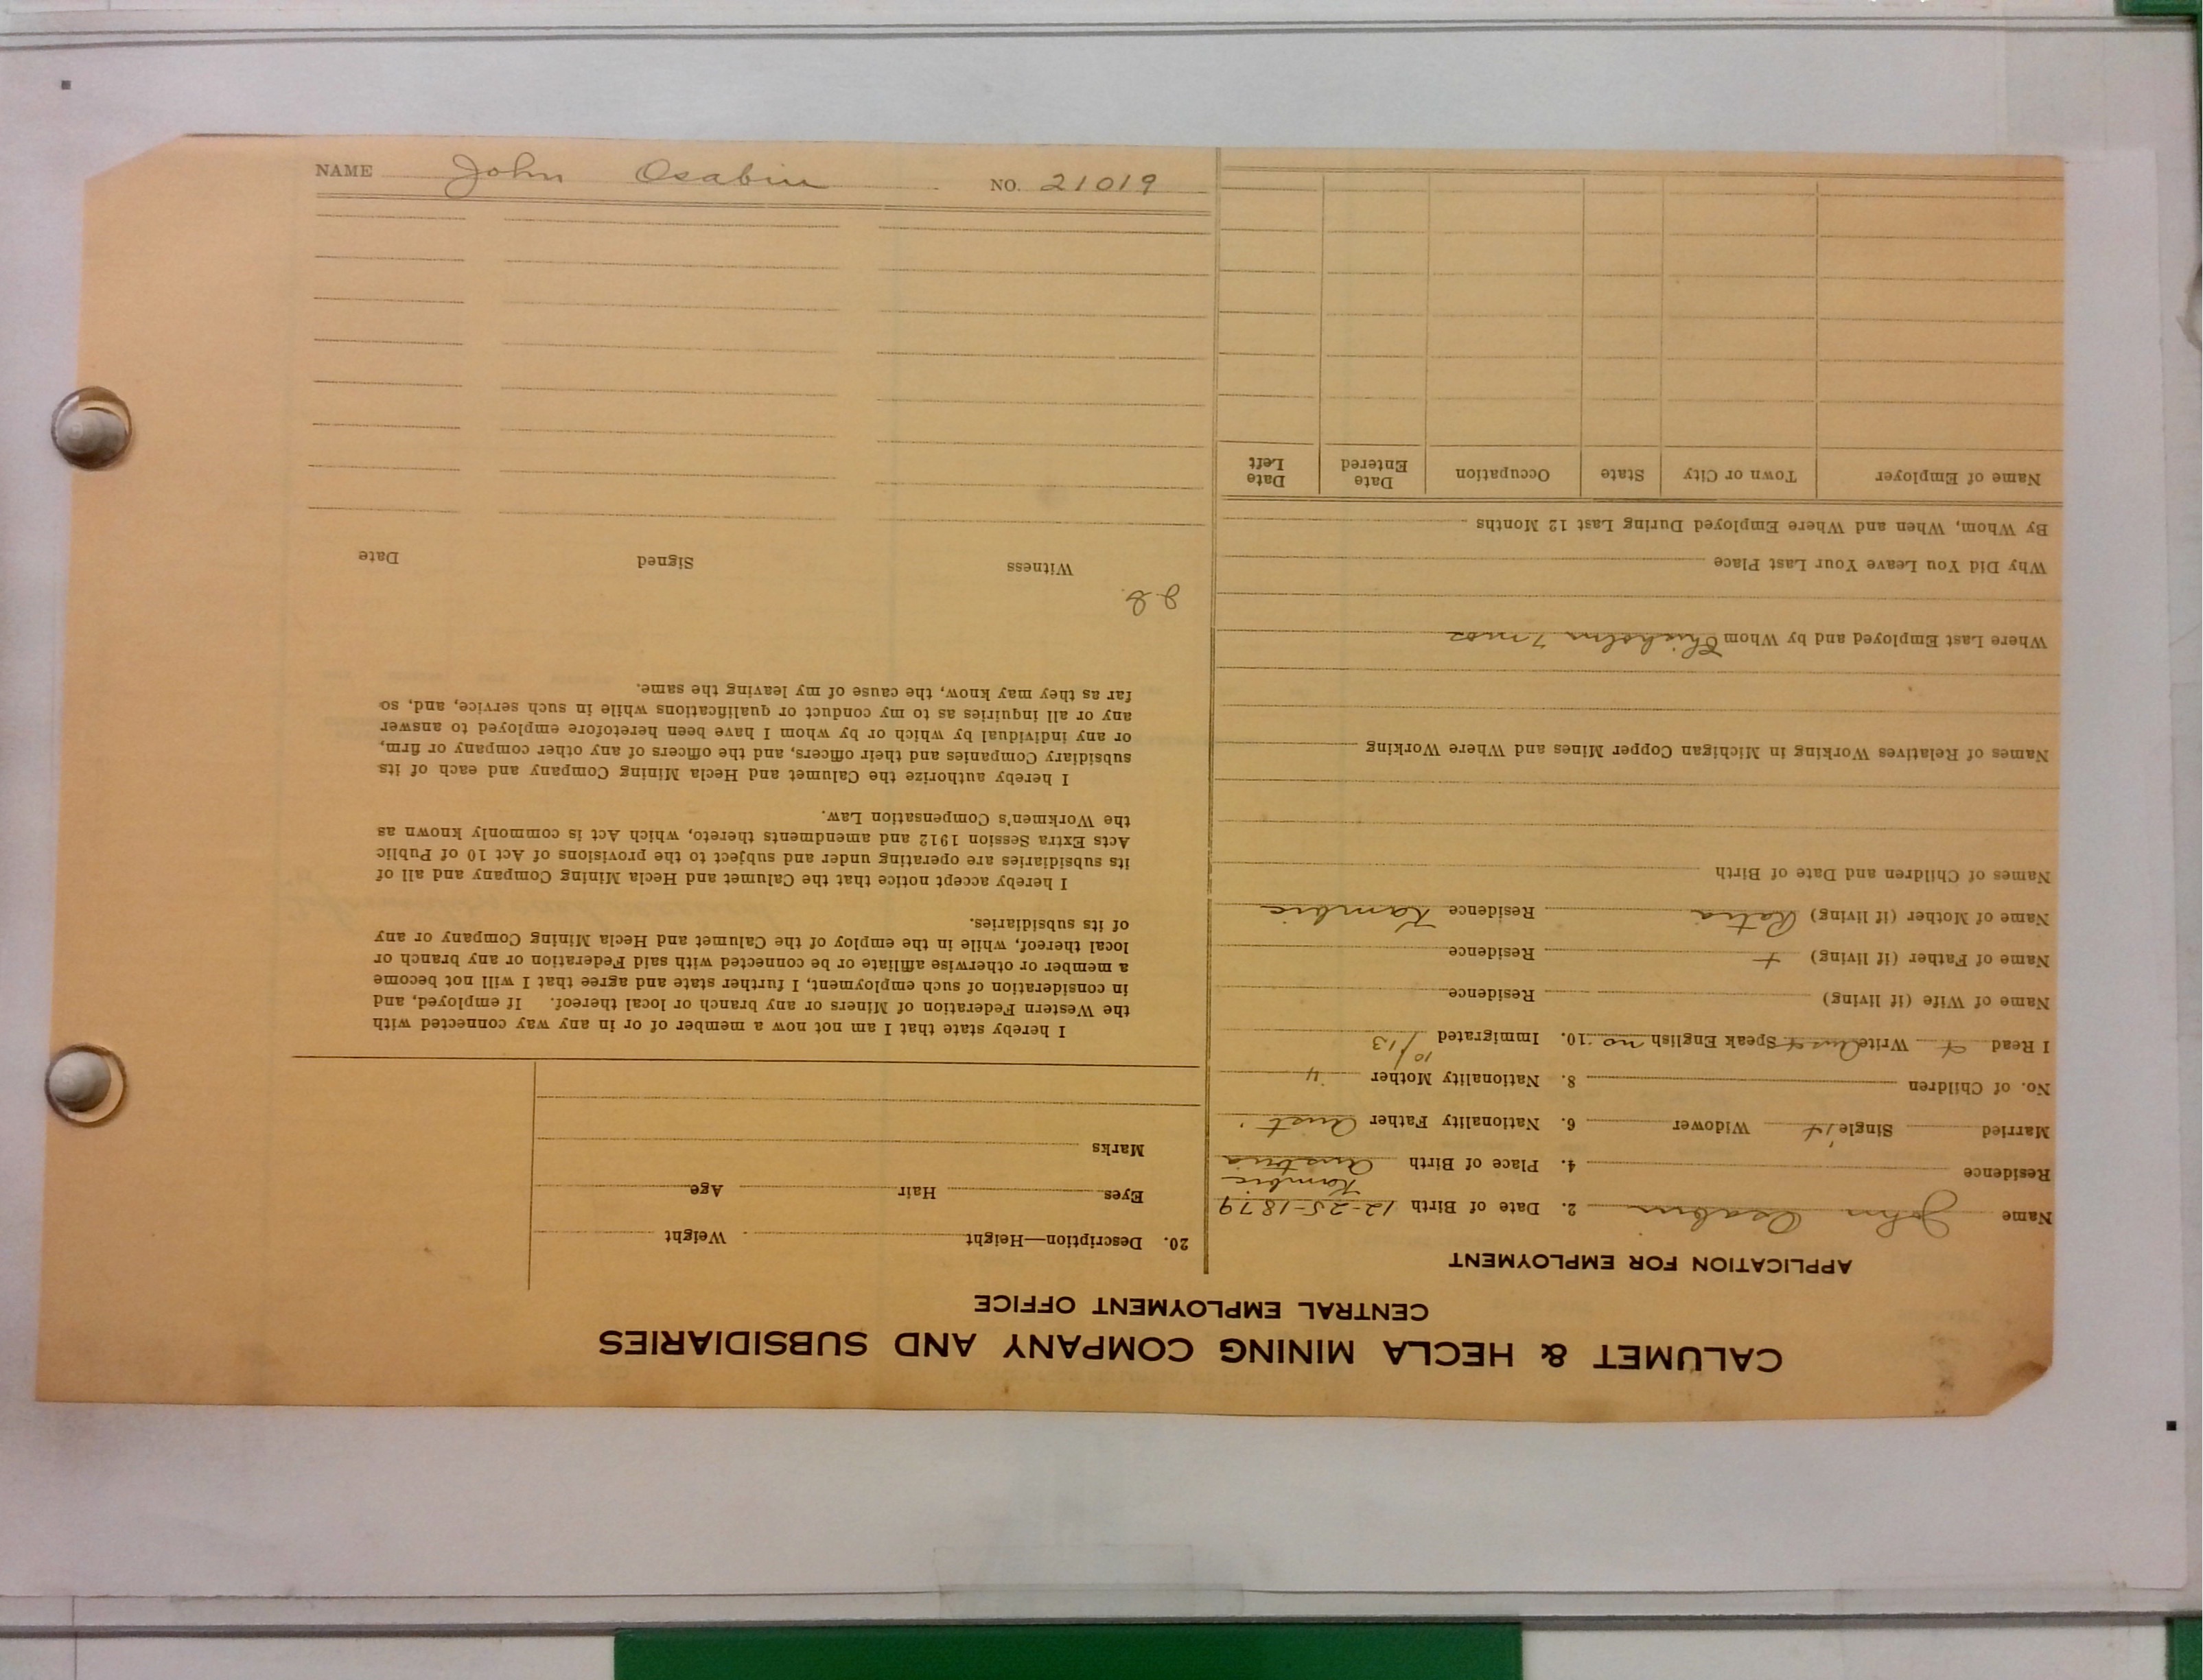 NAME John Osabin NO. 21019
CALUMET & HECLA MINING COMPANY AND SUBSIDIARIES
CENTRAL EMPLOYMENT OFFICE
APPLICATION FOR EMPLOYMENT
Name John Osabin 2. Date of Birth 12-25-1879
Kambic
Residence 4. Place of Birth Austria
Married Single Widower 6. Nationality Father Aust.
No. of Children 8. Nationality Mother "
I Read Write Aust Speak English no 10. Immigrated 10/13
Name of Wife (if living) Residence
Name of Father (if living) + Residence
Name of Mother (if living) Residence Kambic
Names of Children and Date of Birth
Names of Relatives Working in Michigan Copper Mines and Where Working
Where Last Employed and by Whom Chisholm 7 mos
Why Did You Leave Your Last Place
By Whom, When and Where Employed During Last 12 Months
Name of Employer Town or City State Occupation Date Entered Date Left
20. Description—Height Weight
Eyes Hair Age
Marks
I hereby state that I am not now a member of or in any way connected with
the Western Federation of Miners or any branch or local thereof. If employed, and
in consideration of such employment, I further state and agree that I will not become
a member or otherwise affiliate or be connected with said Federation or any branch or
local thereof, while in the employ of the Calumet and Hecla Mining Company or any
of its subsidiaries.
I hereby accept notice that the Calumet and Hecla Mining Company and all of
its subsidiaries are operating under and subject to the provisions of Act 10 of Public
Acts Extra Session 1912 and amendments thereto, which Act is commonly known as
the Workmen's Compensation Law.
I hereby authorize the Calumet and Hecla Mining Company and each of its
subsidiary Companies and their officers, and the officers of any other company or firm,
or any individual by which or by whom I have been heretofore employed to answer
any or all inquiries as to my conduct or qualifications while in such service, and, so
far as they may know, the cause of my leaving the same.
Witness Signed Date